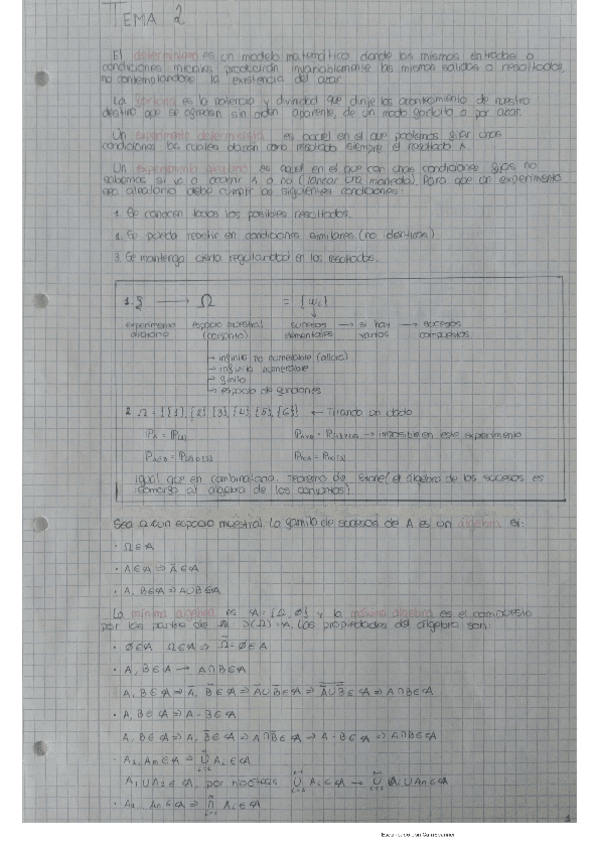 TEMA 2
El determinismo es un modelo matemático donde las mismas entradas o
condiciones iniciales producirán invariablemente las mismas salidas o resultados,
no contemplándose la existencia del azar.
La fortuna es la potencia y divinidad que dirije los acontecimiento de nuestro
destino que se agrupan sin orden aparente, de un modo fortuito o por azar.
Un experimento determinista es aquel en el que podemos fijar unas
condiciones las cuales darán como resultado siempre el resultado A.
Un experimento aleatorio es aquel en el que con unas condiciones fijas no
sabemos si va a ocurrir A o no (lanzar una moneda). Para que un experimento
sea aleatorio debe cumplir las siguientes condiciones:
1. Se conocen todos los posibles resultados.
2. Se pueda repetir en condiciones similares (no idénticas)
3. Se mantenga cierta regularidad en los resultados.
1. ξ → Ω = {ωi}
experimento aleatorio espacio muestral (conjunto) sucesos elementales → si hay varios → sucesos compuestos
→ infinito no numerable
→ infinito numerable
→ finito
→ espacio de funciones
2. Ω = {{1}, {2}, {3}, {4}, {5}, {6}} ← Tirando un dado
→ imposible en este experimento
Igual que en combinatoria. Teorema de Stone (el álgebra de los sucesos es
isomorfo al álgebra de los conjuntos)
Sea Ω un espacio muestral. La familia de sucesos de A es un álgebra si:
· Ω ∈ A
· A ∈ A ⇒ Ā ∈ A
· A, B ∈ A ⇒ A ∪ B ∈ A
La mínima álgebra es A = {Ω, ∅} y la máxima álgebra es el compuesto
por las partes de Ω P(Ω) = A. Las propiedades del álgebra son:
· ∅ ∈ A Ω ∈ A ⇒ Ω̄ = ∅ ∈ A
· A, B ∈ A → A ∩ B ∈ A
· A, B ∈ A ⇒ A - B ∈ A
1